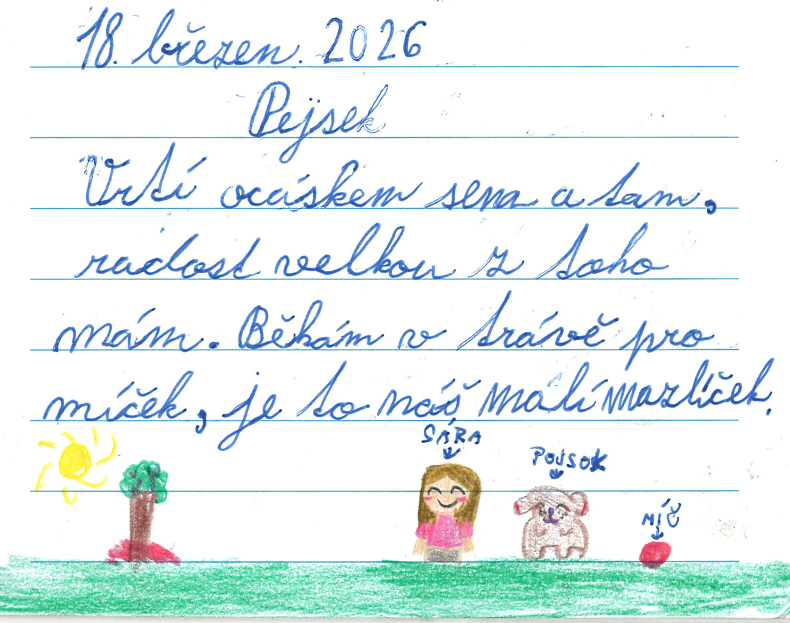 18. březen. 2026
Pejsek
Vrtí ocáskem sem a tam,
radost velkou z toho
mám. Běhám v trávě pro
míček, je to náš malí mazlíček.
SÁRA
PEJSEK
MÍČ